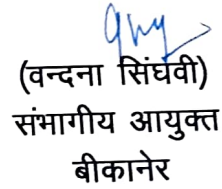 (वन्दना सिंघवी)
संभागीय आयुक्त
बीकानेर